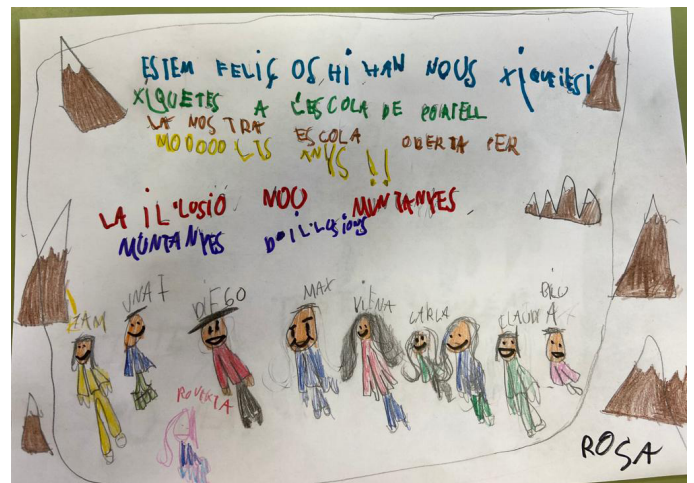 ESTEM FELIÇ OS HI HAN NOUS XIQUETES I
XIQUETES A L'ESCOLA DE PORTELL
LA NOSTRA ESCOLA OBERTA PER
MOOOOOLTS ANYS !!
LA IL·LUSIÓ NOU MUNTANYES
MUNTANYES DO IL·LUSIONS
IZAM UNAI DIEGO MAX VILENA CARLA CLAUDIA BRU
ROVERTA
ROSA